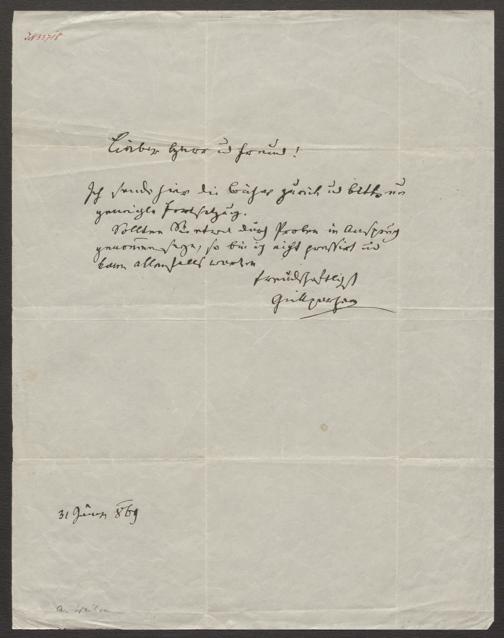 Lieber Herr und Freund!
Ich sende hier die Bücher zurück und bitte um
geneigte Fortsetzung.
Sollten Sie etwa durch Proben in Anspruch
genommen seyn, so bin ich nicht pressirt und
kann allenfalls warten
freundschaftlichst
Grillparzer
31 Jäner 869